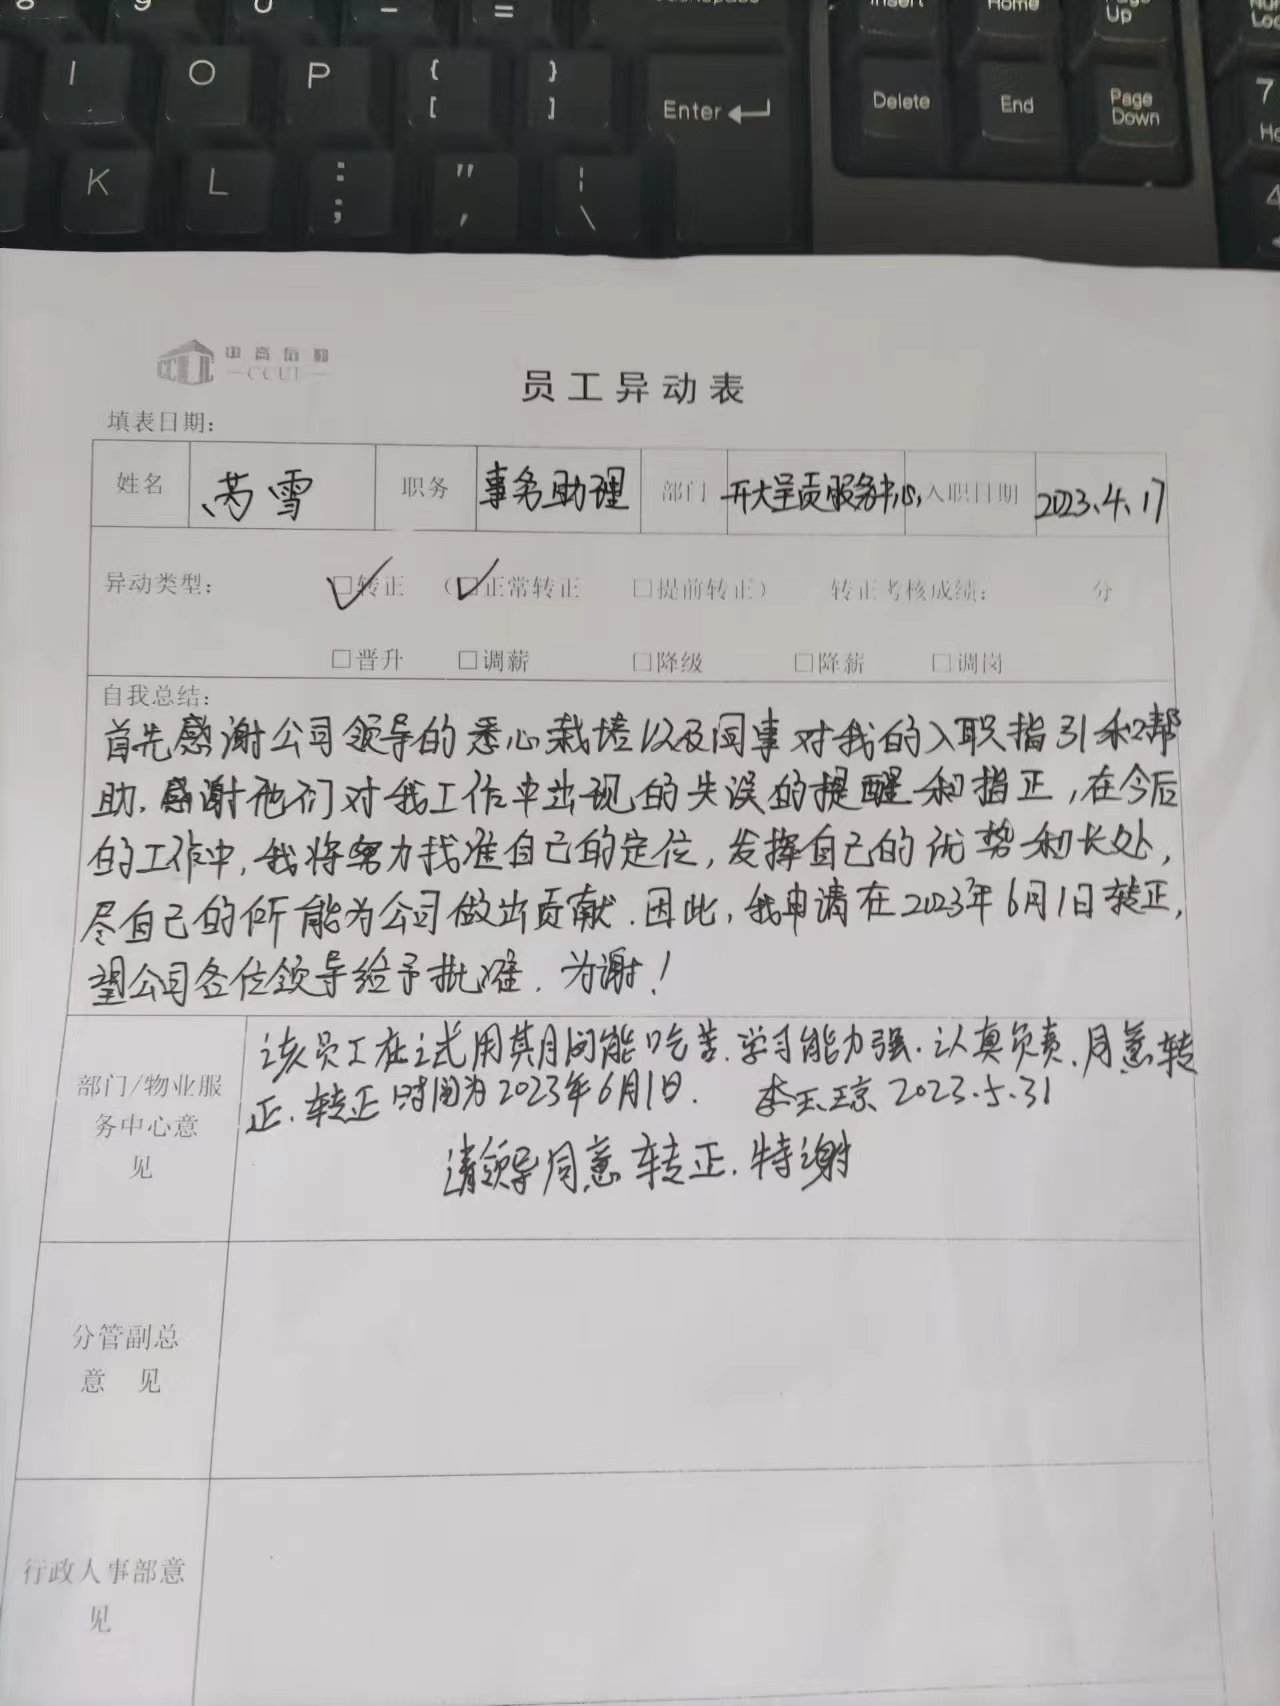 8 9 0 - = Insert Home Page Up
I O P { [ } ] Enter Delete End Page Down 7
K L : ; " ' | \ 4
中高后勤
员工异动表
填表日期：
姓名 芮雪 职务 事务助理 部门 开大呈贡服务中心 入职日期 2023.4.17
异动类型： ☑转正 （☑正常转正 □提前转正） 转正考核成绩： 分
□晋升 □调薪 □降级 □降薪 □调岗
自我总结：
首先感谢公司领导的悉心栽培以及同事对我的入职指引和帮
助.感谢他们对我工作中出现的失误的提醒和指正,在今后
的工作中,我将努力找准自己的定位,发挥自己的优势和长处,
尽自己的所能为公司做出贡献.因此,我申请在2023年6月1日转正,
望公司各位领导给予批准.为谢!
部门/物业服务中心意见
该员工在试用期间能吃苦.学习能力强.认真负责.同意转
正.转正时间为2023年6月1日. 李玉琼 2023.5.31
请领导同意转正.特谢
分管副总
意 见
行政人事部意
见